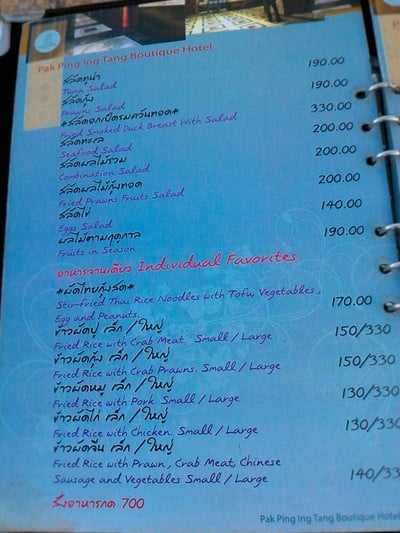 Pak Ping Ing Tang Boutique Hotel
สลัดทูน่า 190.00
Tuna Salad
สลัดกุ้ง 190.00
Prawns Salad
*สลัดอกเป็ดรมควันทอด* 330.00
Fried Smoked Duck Breast With Salad
สลัดทะเล 200.00
Seafood Salad
สลัดผลไม้รวม 200.00
Combination Salad
สลัดผลไม้กุ้งทอด 200.00
Fried Prawns Fruits Salad
สลัดไข่ 140.00
Eggs Salad
ผลไม้ตามฤดูกาล 190.00
Fruits in Season
อาหารจานเดียว Individual Favorites
*ผัดไทยกุ้งสด*
Stir-fried Thai Rice Noodles with Tofu, Vegetables, 170.00
Egg and Peanuts.
ข้าวผัดปู เล็ก / ใหญ่ 150/330
Fried Rice with Crab Meat. Small / Large
ข้าวผัดกุ้ง เล็ก / ใหญ่ 150/330
Fried Rice with Crab Prawns. Small / Large
ข้าวผัดหมู เล็ก / ใหญ่ 130/330
Fried Rice with Pork. Small / Large
ข้าวผัดไก่ เล็ก / ใหญ่ 130/330
Fried Rice with Chicken. Small / Large
ข้าวผัดจีน เล็ก / ใหญ่
Fried Rice with Prawn, Crab Meat, Chinese
Sausage and Vegetables Small / Large 140/33
สั่งอาหารกด 700
Pak Ping Ing Tang Boutique Hotel